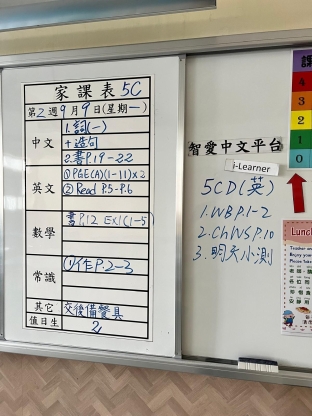 家課表 5C
第2週9月9日(星期一)
中文
1.詞(一)
+造句
2.書P.19-22
英文
①PGE(A)(1-11)×2
② Read P.5-P.6
數學
書P.12 EX1(1-5)
常識
①作P.2-3
其它
交後備餐具
值日生
2
智愛中文平台
i-Learner
5CD(英)
1.WBP.1-2
2.ChWSP.10
3.明天小測
4
3
2
1
0
Lunch